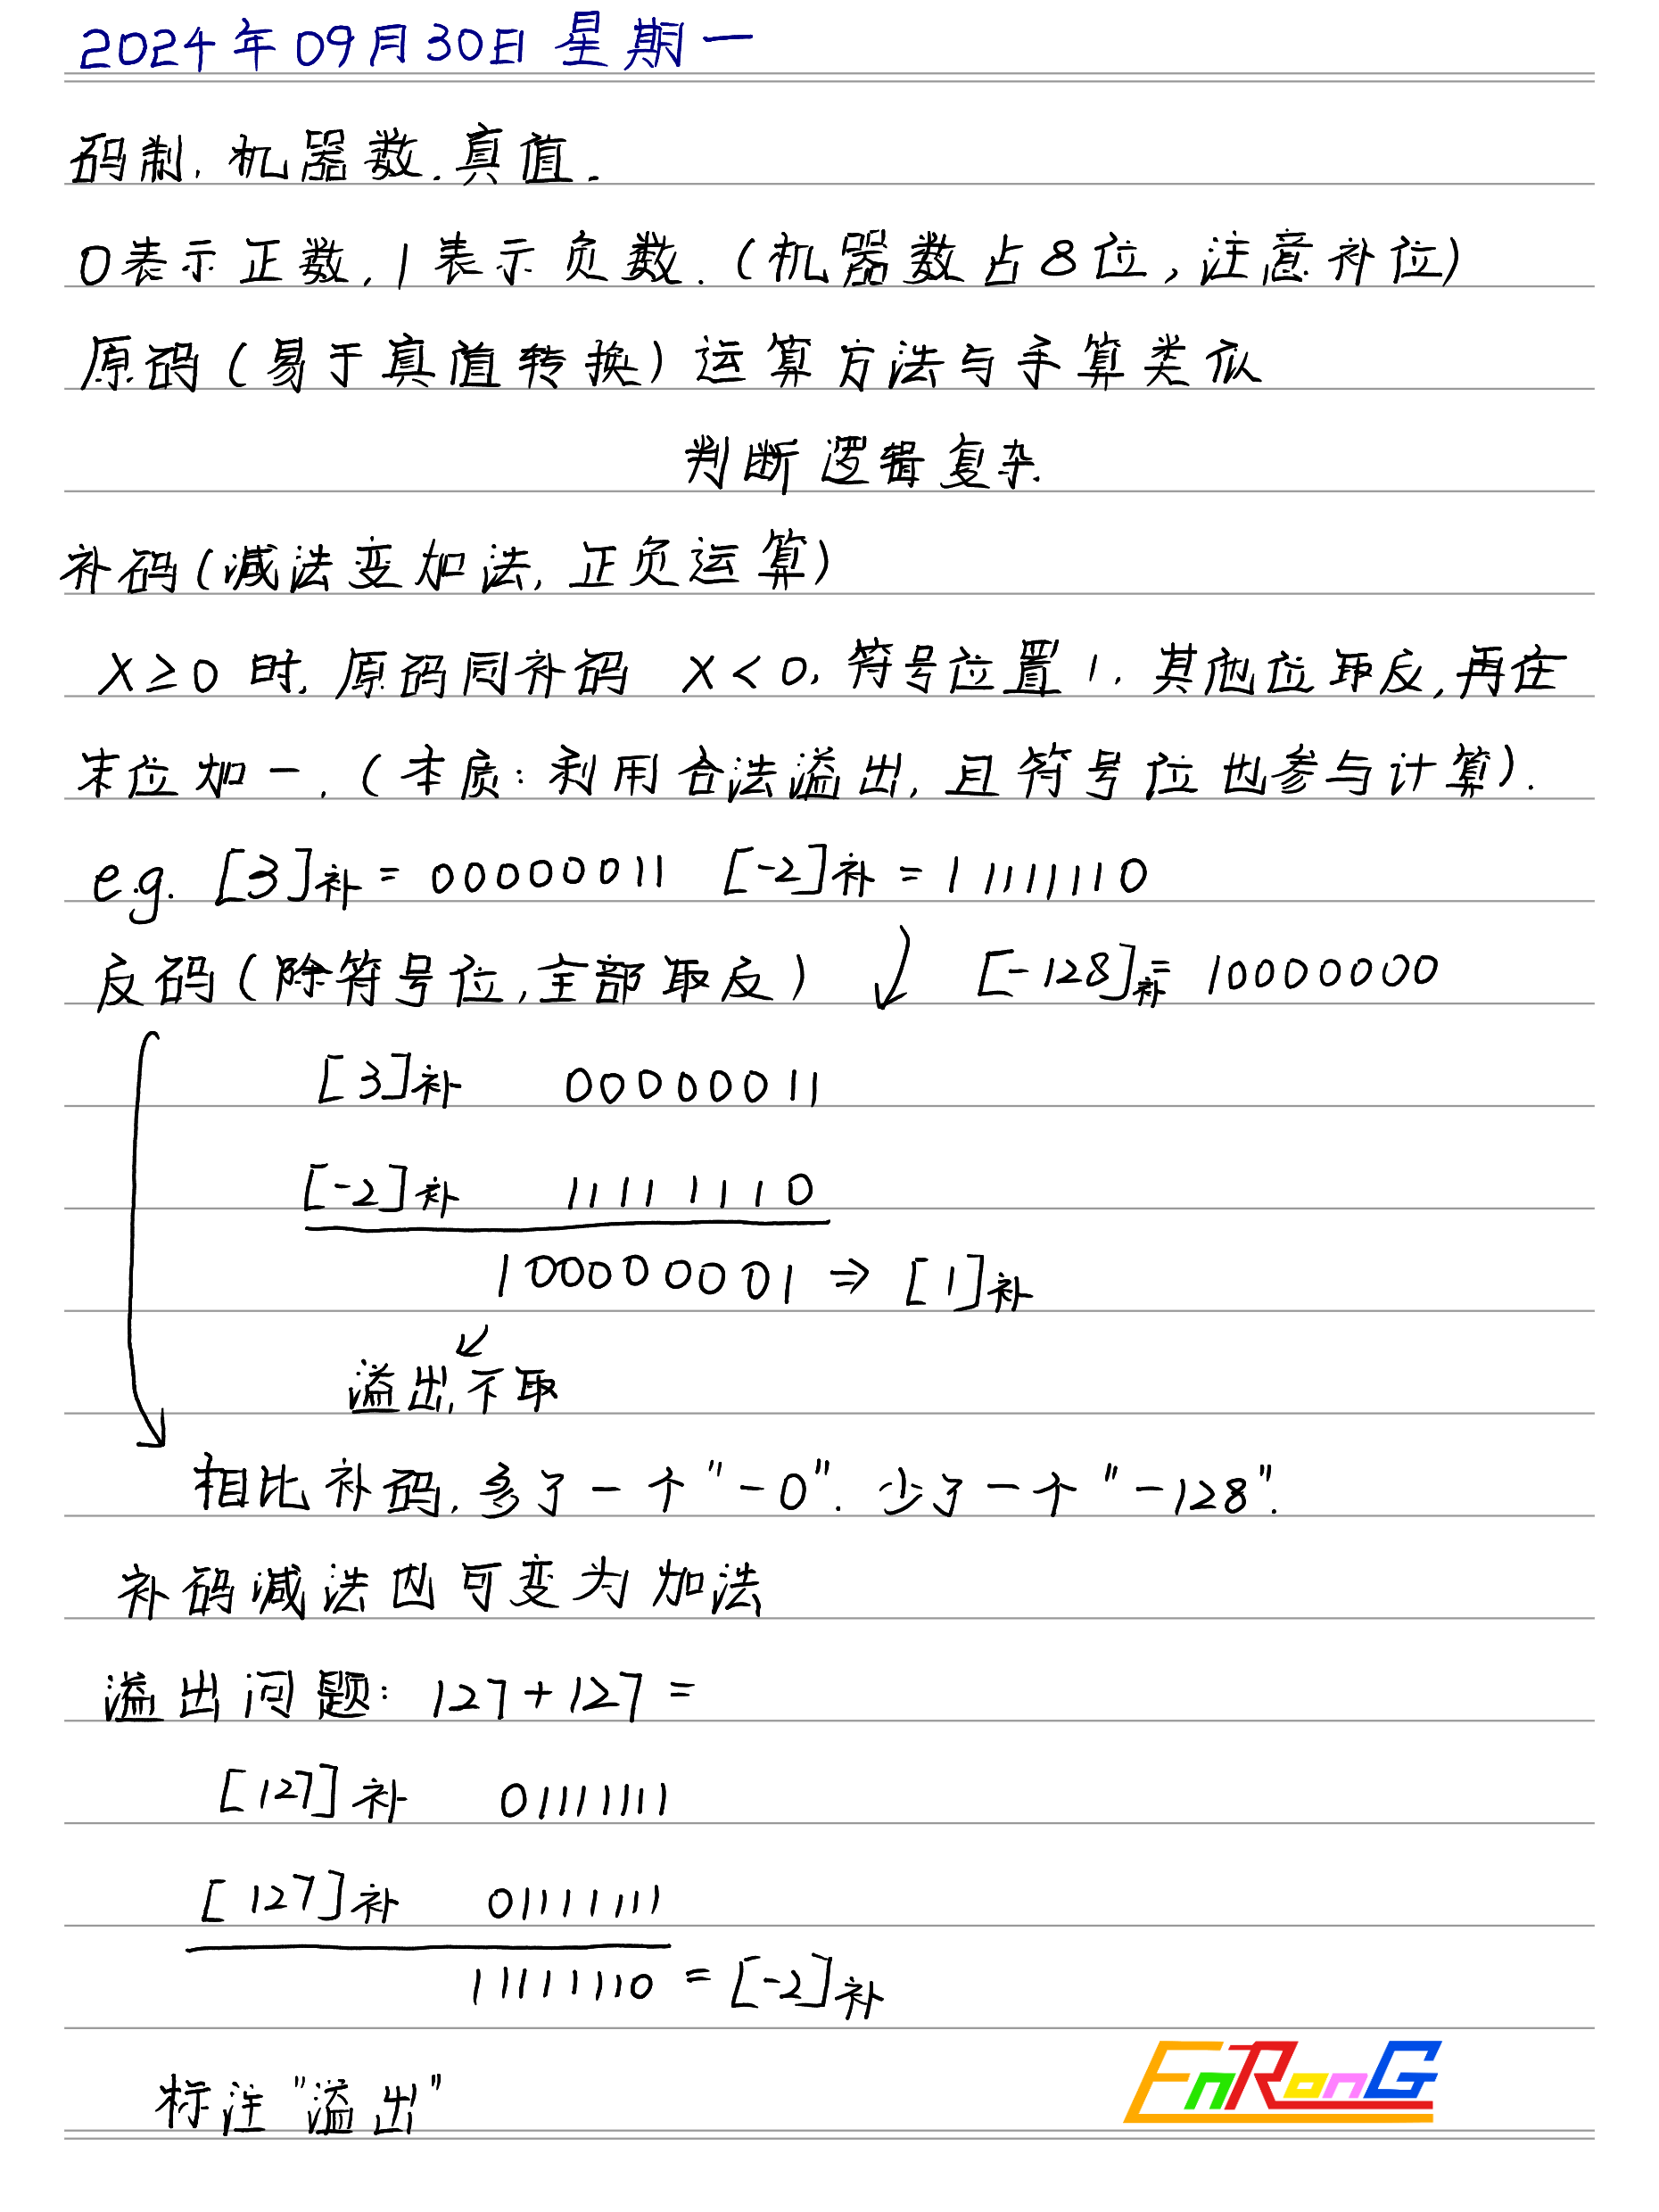 2024年09月30日 星期一
码制, 机器数. 真值.
0表示正数, 1表示负数. (机器数占8位, 注意补位)
原码(易于真值转换) 运算方法与手算类似
判断逻辑复杂.
补码(减法变加法, 正负运算)
X≥0时. 原码同补码 X<0, 符号位置1, 其他位取反, 再在
末位加一. (本质: 利用合法溢出, 且符号位也参与计算).
e.g. [3]补 = 00000011 [-2]补 = 11111110
反码(除符号位, 全部取反) ↙ [-128]补= 10000000
[3]补 00000011
[-2]补 11111110
100000001 ⇒ [1]补
↙
溢出, 不取
相比补码, 多了一个"-0". 少了一个"-128".
补码减法也可变为加法
溢出问题: 127+127=
[127]补 01111111
[127]补 01111111
11111110 = [-2]补
标注"溢出"
EnRonG